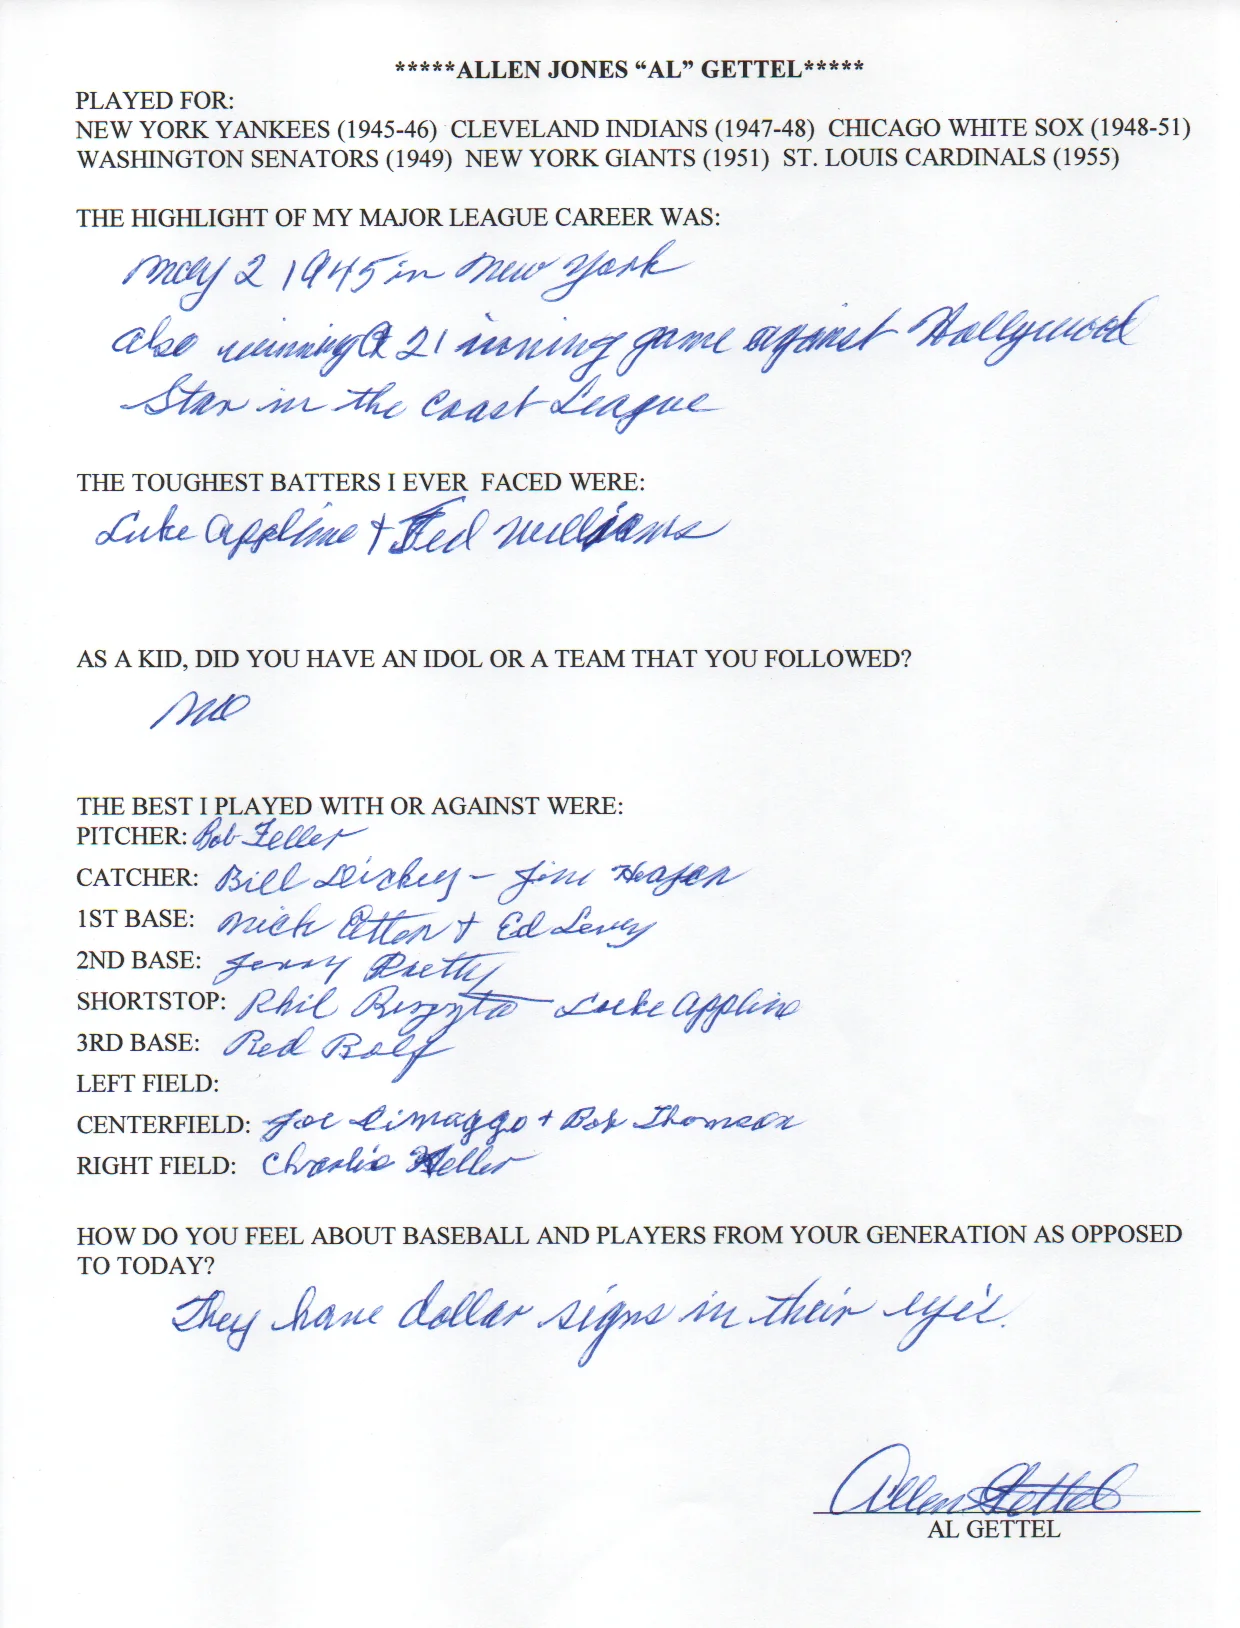 *****ALLEN JONES “AL” GETTEL*****
PLAYED FOR:
NEW YORK YANKEES (1945-46) CLEVELAND INDIANS (1947-48) CHICAGO WHITE SOX (1948-51)
WASHINGTON SENATORS (1949) NEW YORK GIANTS (1951) ST. LOUIS CARDINALS (1955)
THE HIGHLIGHT OF MY MAJOR LEAGUE CAREER WAS:
May 2 1945 in New York
also winning a 21 inning game against Hollywood
Star in the Coast League
THE TOUGHEST BATTERS I EVER FACED WERE:
LukeAppline + Ted Williams
AS A KID, DID YOU HAVE AN IDOL OR A TEAM THAT YOU FOLLOWED?
No
THE BEST I PLAYED WITH OR AGAINST WERE:
PITCHER: Bob Feller
CATCHER: Bill Dickey - Jim
1ST BASE: Nick Etten + Ed Levy
2ND BASE: Jerry
SHORTSTOP: Phil Luke Appline
3RD BASE: Red Rolf
LEFT FIELD:
CENTERFIELD: Joe Dimaggo + Bob Thomson
RIGHT FIELD: Charlie Keller
HOW DO YOU FEEL ABOUT BASEBALL AND PLAYERS FROM YOUR GENERATION AS OPPOSED
TO TODAY?
They have dollar signs in their
Allen Gettel
AL GETTEL